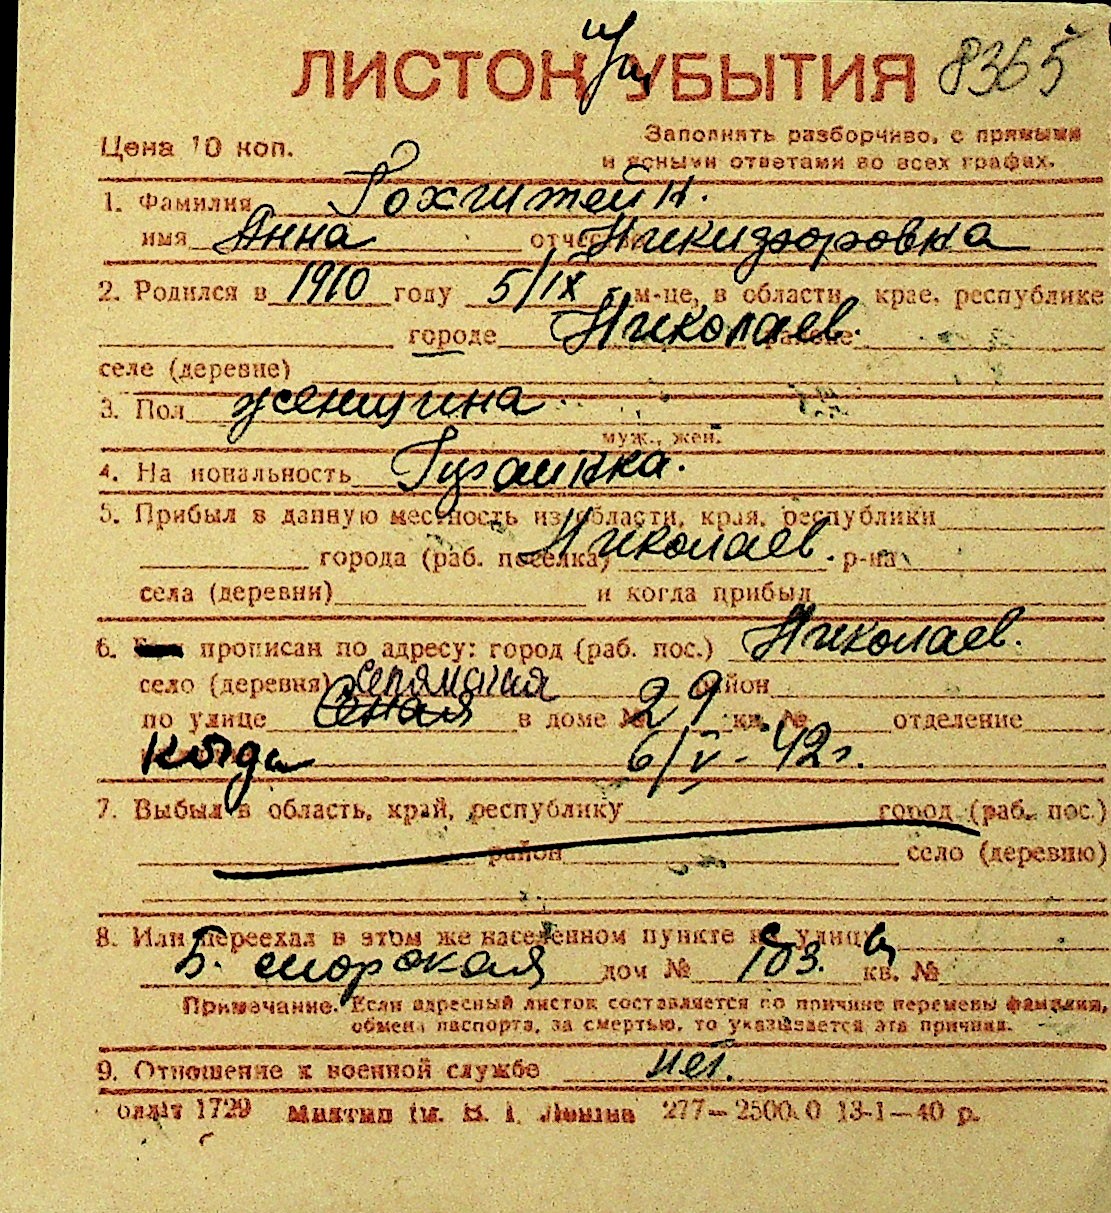 ЛИСТОК УБЫТИЯ 8365
Цена 10 коп.
Заполнять разборчиво, с прямыми
и ясными ответами во всех графах.
1. Фамилия Рохштейн.
имя Анна отчество Никифоровна
2. Родился в 1910 году 5/IX м-це, в области, крае, республике
городе Николаев. районе
селе (деревне)
3. Пол женщина.
муж., жен.
4. Национальность
5. Прибыл в данную местность из области, края, республики
города (раб. поселка) Николаев. р-на
села (деревни) и когда прибыл
6. прописан по адресу: город (раб. пос.) Николаев.
село (деревня) район
по улице Сеная в доме № 29 кв. № отделение
когда 6/V-42г.
7. Выбыл в область, край, республику город (раб. пос.)
район село (деревню)
8. Или переехал в этом же населенном пункте с улицы
Б. морская дом № 103. кв. №
Примечание. Если адресный листок составляется по причине перемены фамилии,
обмена паспорта, за смертью, то указывается эта причина.
9. Отношение к военной службе нет.
1729 им. В. И. Ленина 277—2500.0 13-1—40 р.